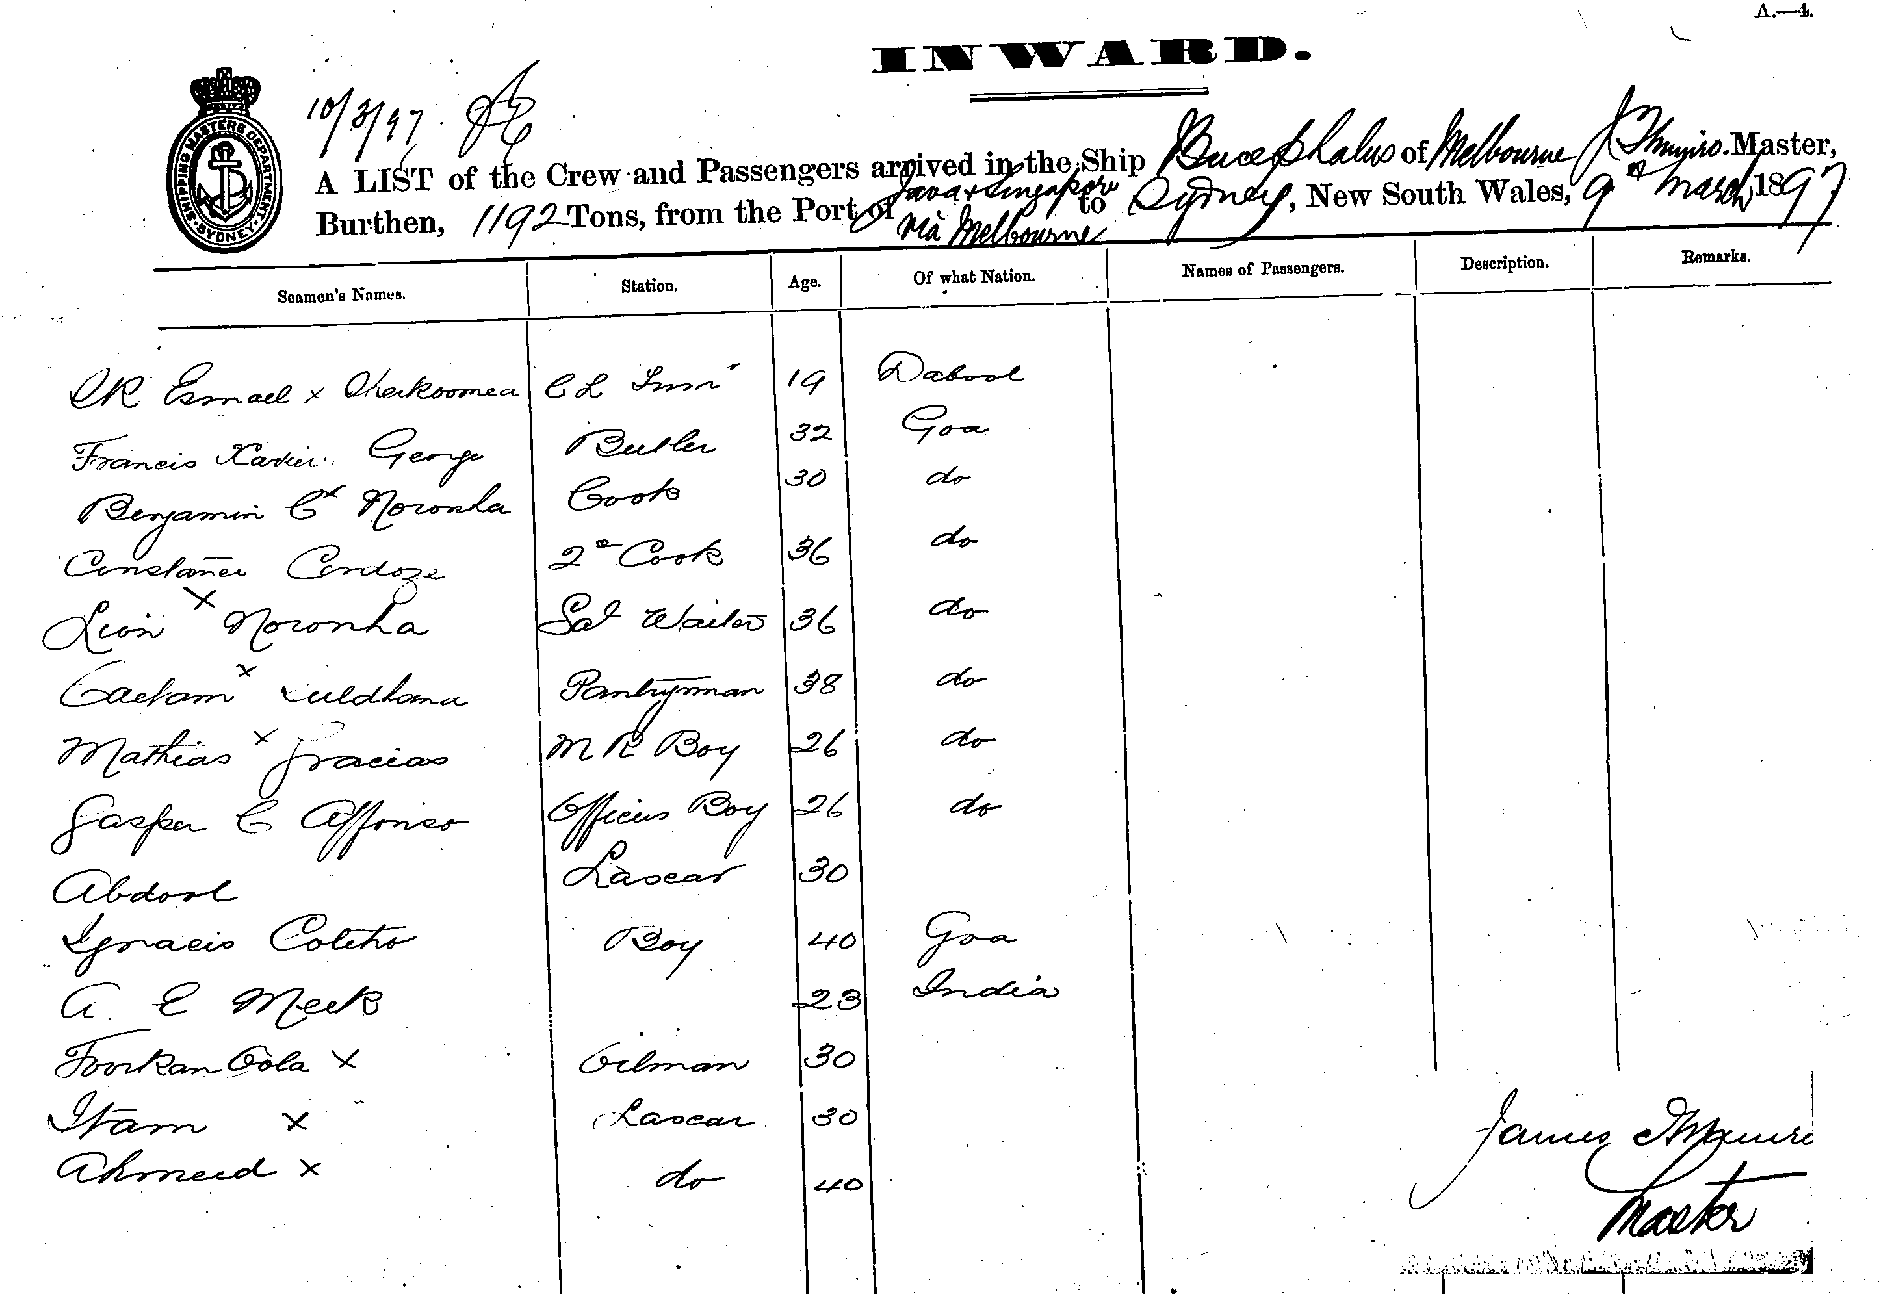 A.—4.
INWARD.
SHIPPING MASTERS DEPARTMENT SYDNEY
10/3/97
A LIST of the Crew and Passengers arrived in the Ship Bucephalus of Melbourne J Munro Master,
Burthen, 1192 Tons, from the Port of Java & Singapore via Melbourne to Sydney, New South Wales, 9th March 1897
Seamen's Names. Station. Age. Of what Nation. Names of Passengers. Description. Remarks.
SK Esmael x 19 Dabool
Francis Xavier George Butler 32 Goa
Benjamin C x Noronha Cook 30 do
Cordoze 2d Cook 36 do
Lion x Noronha Sal Waiter 36 do
Caetam x Pantryman 38 do
Mathias x Gracias M R Boy 26 do
Gasper C Affonso Officers Boy 26 do
Abdool Lascar 30
Ignacio Coleho Boy 40 Goa
A. E Meek 23 India
x Oilman 30
Itam x Lascar 30
Ahmeed x do 40
James Munro
Master